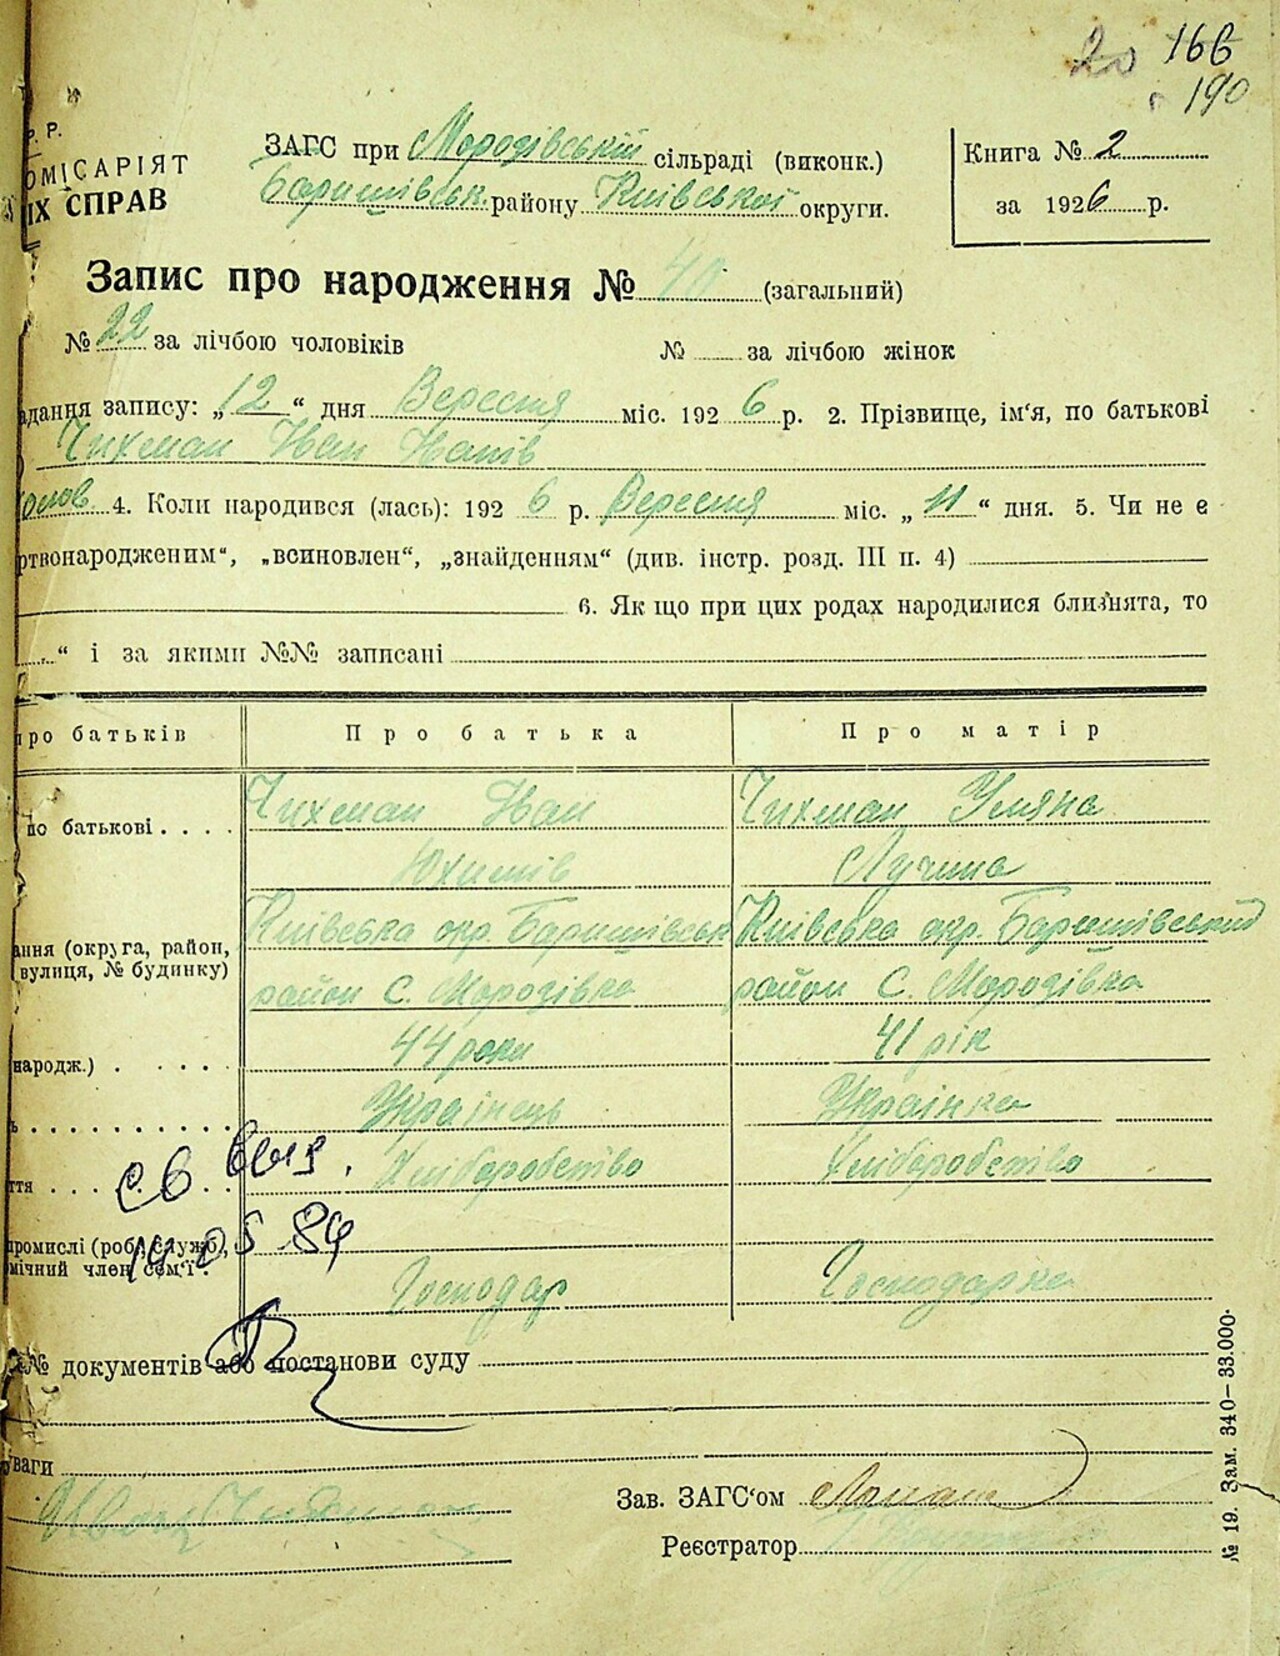 20 166
190
Р. Р.
ОМІСАРІЯТ
ІХ СПРАВ
ЗАГС при Морозівській сільраді (виконк.)
Баришівськ. району Київської округи.
Книга № 2
за 1926 р.
Запис про народження № 40 (загальний)
№ 22 за лічбою чоловіків № за лічбою жінок
адання запису: „12“ дня Вересня міс. 1926 р. 2. Прізвище, ім‘я, по батькові
Чихман Іван Іванів
4. Коли народився (лась): 1926 р. Вересня міс. „11“ дня. 5. Чи не є
ртвонародженим“, „всиновлен“, „знайденням“ (див. інстр. розд. III п. 4)
6. Як що при цих родах народилися близ‘нята, то
“ і за якими №№ записані
про батьків Про батька Про матір
по батькові Чихман Іван Чихман Уляна
Юхимів Лучина
ання (округа, район, Київська окр. Баришівськ Київська окр. Баришівський
вулиця, № будинку) район С. Морозівка район С. Морозівка
народж.) 44 роки 41 рік
ь Українець Українка
ття Хліборобство Хліборобство
св выд.
14 05 84
промислі (роб., служб.,
мічний член сем‘ї. Господар Господарка
№ документів або постанови суду
уваги
Зав. ЗАГС‘ом
Реєстратор
№ 19. Зам. 340—33.000.